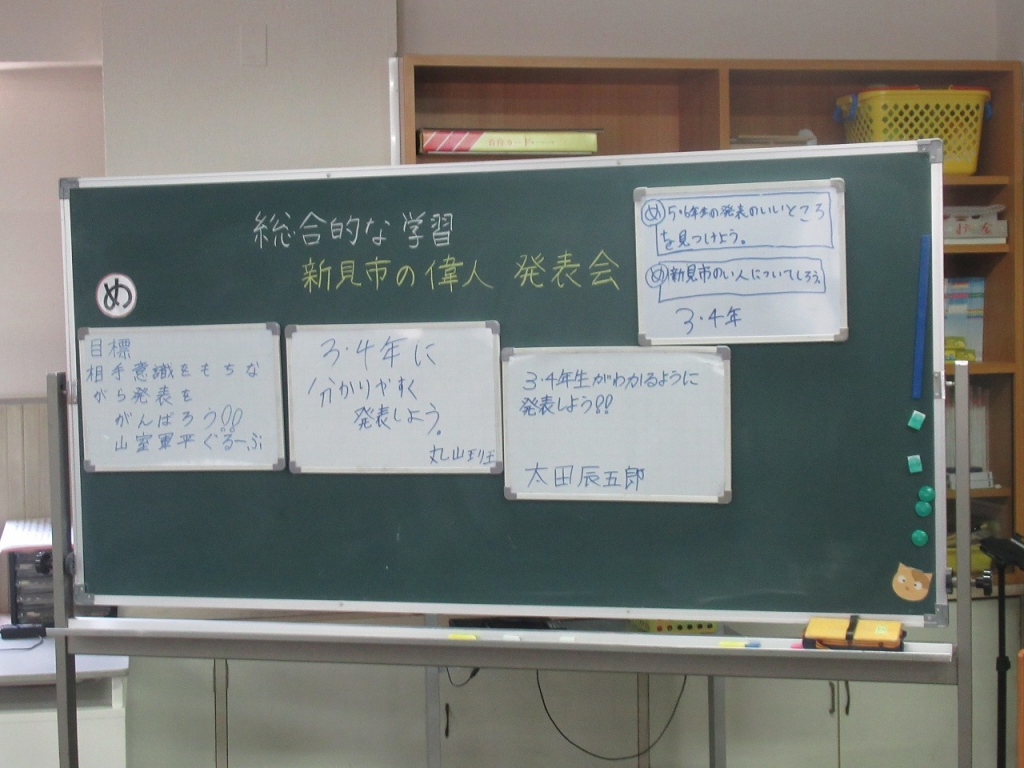 総合的な学習
新見市の偉人 発表会
め
目標
相手意識をもちな
がら発表を
がんばろう!!
山室軍平ぐるーぷ
3・4年に
分かりやすく
発表しよう。
3・4年生がわかるように
発表しよう!!
太田辰五郎
め 5・6年生の発表のいいところ
を見つけよう。
め 新見市のい人についてしろう。
3・4年